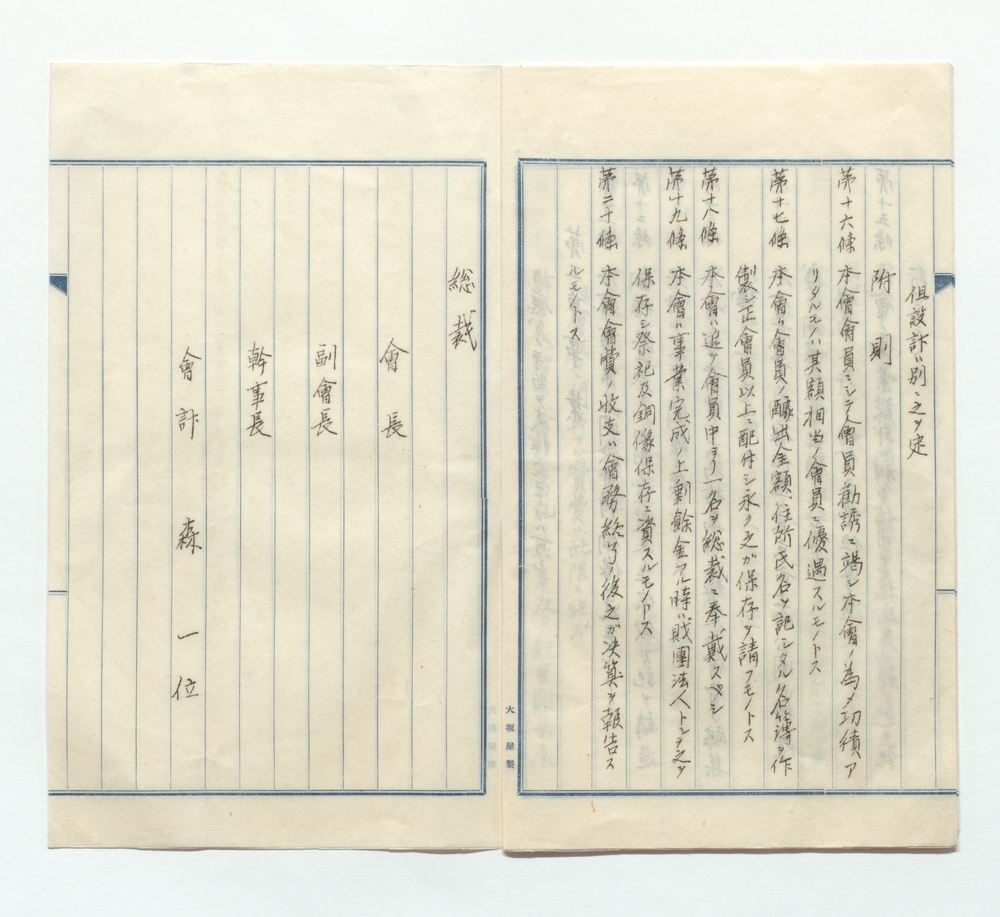 但設計ハ別ニ之ヲ定
附則
第十六條 本會會員ニシテ會員勧誘ニ竭シ本會ノ為メ功績ア
リタルモノハ其額相当ノ會員ニ優遇スルモノトス
第十七條 本會ハ會員ノ醵出金額、住所氏名ヲ記シタル名簿ヲ作
製シ正會員以上ニ配付シ永ク之ガ保存ヲ請フモノトス
第十八條 本會ハ追テ會員中ヨリ一名ヲ総裁ニ奉戴スベシ
第十九條 本會ハ事業完成ノ上剰餘金アル時ハ財團法人トシテ之ヲ
保存シ祭祀及銅像保存ニ資スルモノトス
第二十條 本會會費ノ收支ハ會務終了ノ後之ガ決算ヲ報告ス
ルモノトス
大坂屋製
総裁
會長
副會長
幹事長
會計 森一位